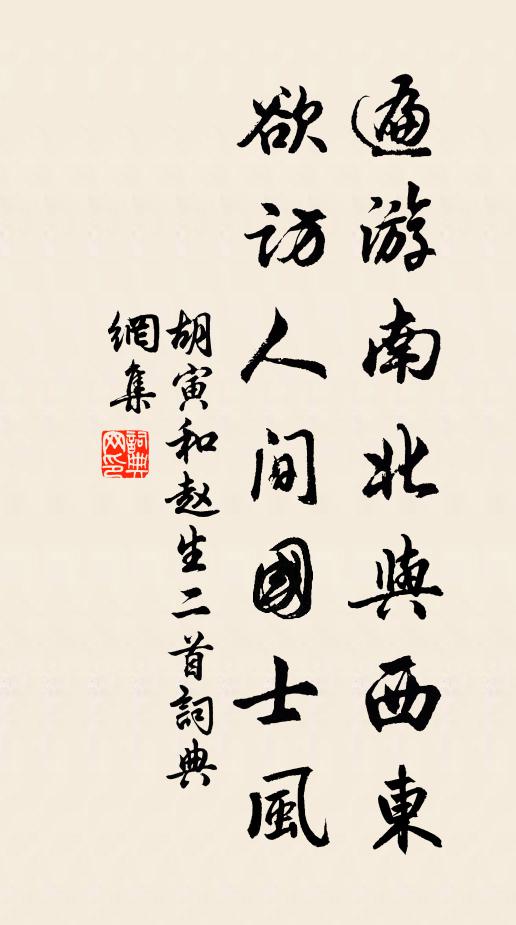 遍游南北與西東
欲訪人間國士風
胡寅和赵生二首詞典
網集
詞典
网印